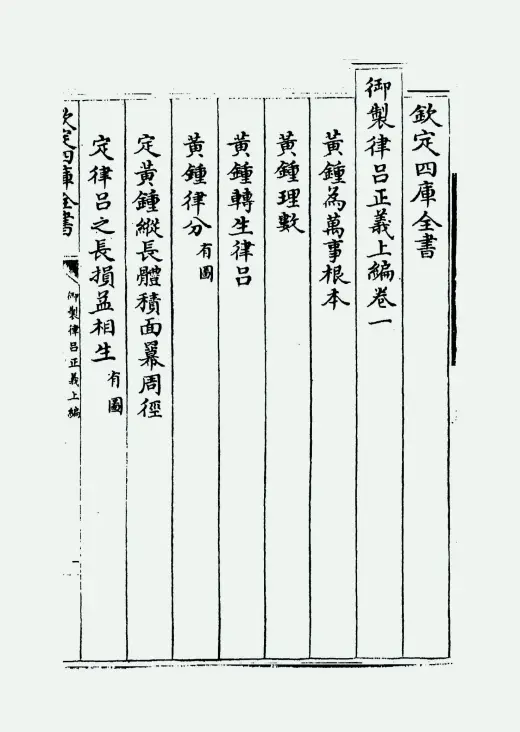 欽定四庫全書
御製律呂正義上編卷一
黃鍾為萬事根本
黃鍾理數
黃鍾轉生律呂
黃鍾律分有圖
定黃鍾縱長體積面冪周徑
定律呂之長損益相生有圖
欽定四庫全書
御製律呂正義上編
一